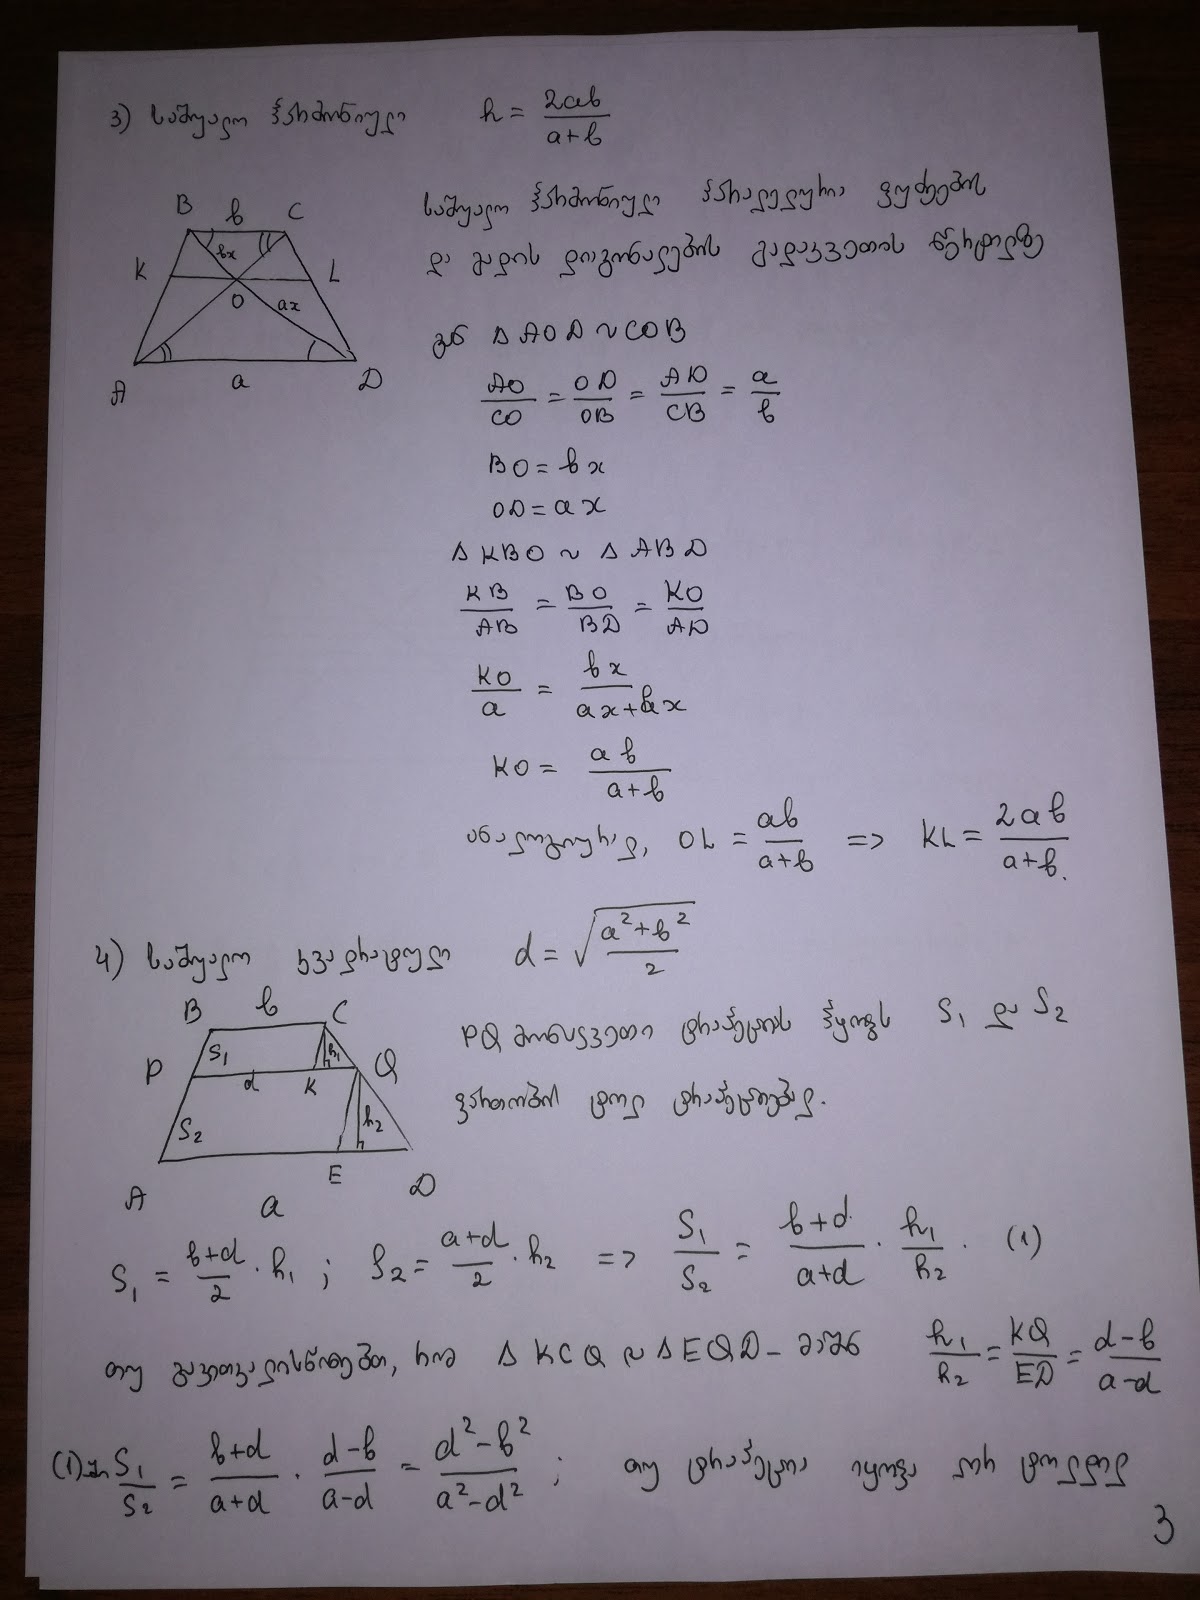 3) საშუალო ჰარმონიული h = 2ab / a+b
B b C
K bx L
O ax
A a D
საშუალო ჰარმონიული პარალელურია ფუძეების
და გადის დიაგონალების გადაკვეთის წერტილზე
ΔAOD ~ COB
AO/CO = OD/OB = AD/CB = a/b
BO = bx
OD = ax
ΔKBO ~ ΔABD
KB/AB = BO/BD = KO/AD
KO/a = bx / ax+bx
KO = ab / a+b
ანალოგიურად, OL = ab / a+b => KL = 2ab / a+b.
4) საშუალო კვადრატული d = √(a²+b² / 2)
B b C
P S₁ d K h₁ Q
S₂ h₂
A a E D
PQ მონაკვეთი ტრაპეციას ჰყოფს S₁ და S₂
ფართობის ტოლ ტრაპეციებად.
S₁ = b+d/2 · h₁ ; S₂ = a+d/2 · h₂ => S₁/S₂ = b+d/a+d · h₁/h₂ . (1)
თუ გავითვალისწინებთ, რომ ΔKCQ ~ ΔEQD - მაშინ h₁/h₂ = KQ/ED = d-b/a-d
(1)-ში S₁/S₂ = b+d/a+d · d-b/a-d = d²-b²/a²-d² ; თუ ტრაპეცია იყოფა ორ ტოლდიდ
3